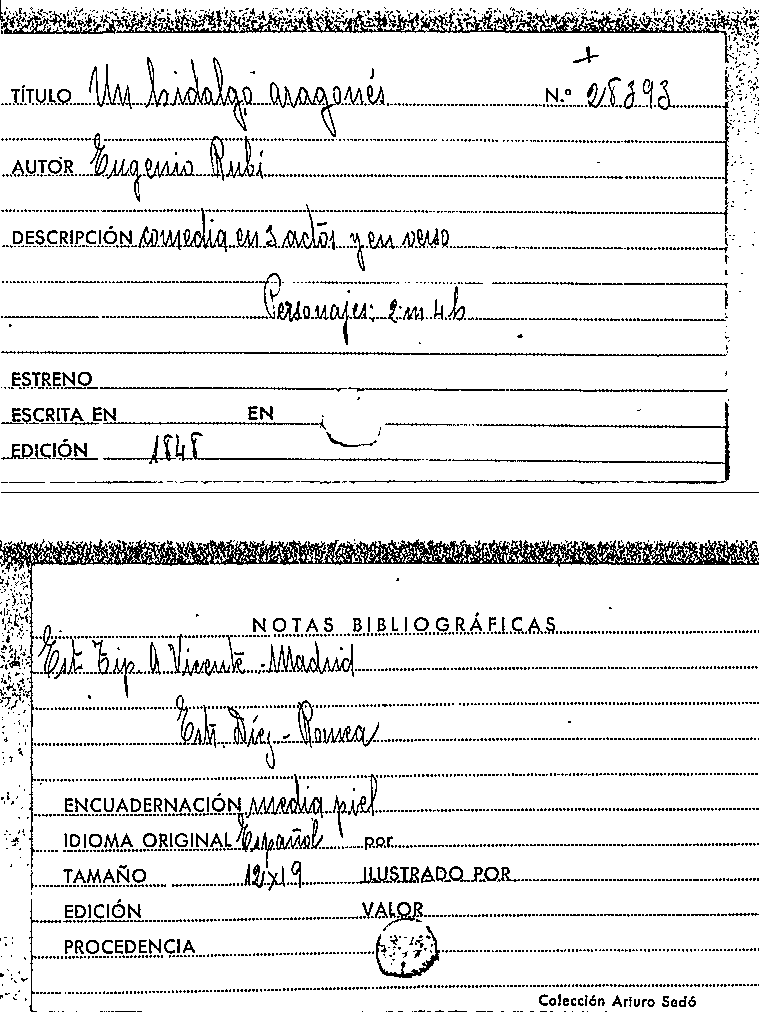 +
TÍTULO Un hidalgo aragonés N.º 28393
AUTOR Eugenio Rubí
DESCRIPCIÓN comedia en 3 actos y en verso
Personajes: 2 m 4 h
ESTRENO
ESCRITA EN EN
EDICIÓN 1848
NOTAS BIBLIOGRÁFICAS
Est. Tip. A Vicente - Madrid
Estr. Díez - Romea
ENCUADERNACIÓN media piel
IDIOMA ORIGINAL Español por
TAMAÑO 12x19 ILUSTRADO POR
EDICIÓN VALOR
PROCEDENCIA
Colección Arturo Sedó